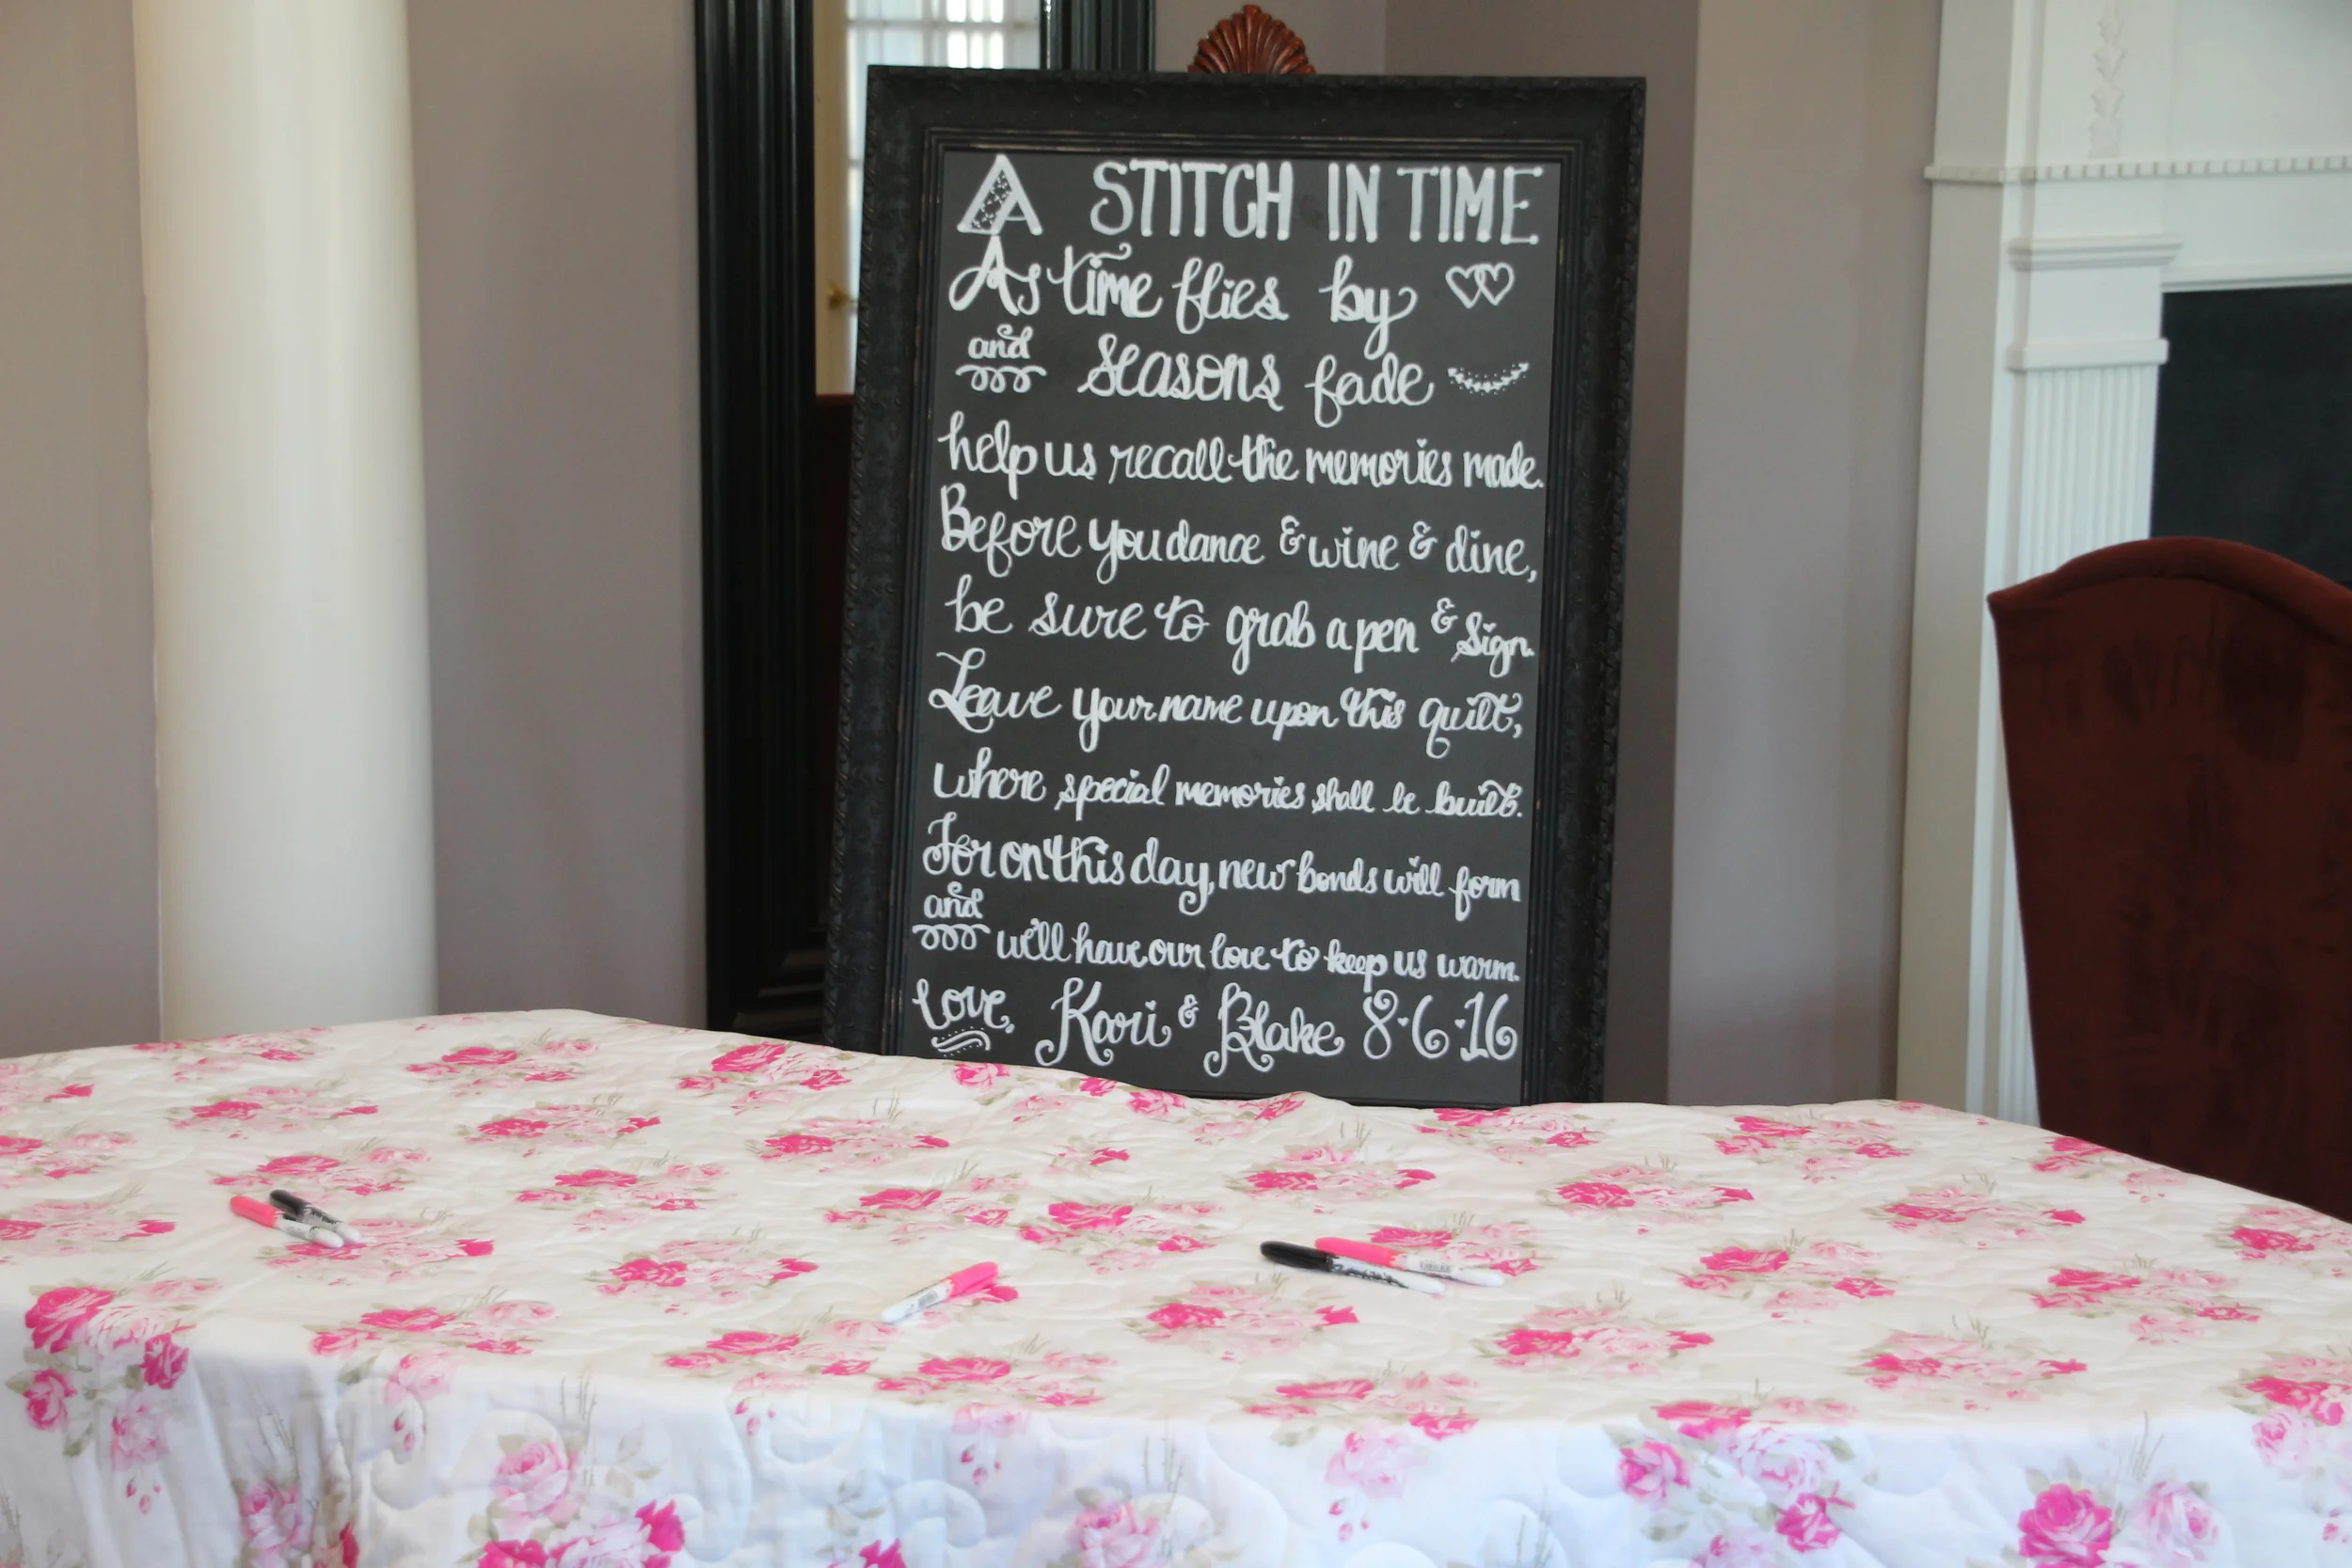 A STITCH IN TIME
As time flies by
and seasons fade
help us recall the memories made.
Before you dance & wine & dine,
be sure to grab a pen & sign.
Leave your name upon this quilt,
where special memories shall be built.
For on this day, new bonds will form
and we'll have our love to keep us warm.
Love, Kaori & Blake 8·6·16